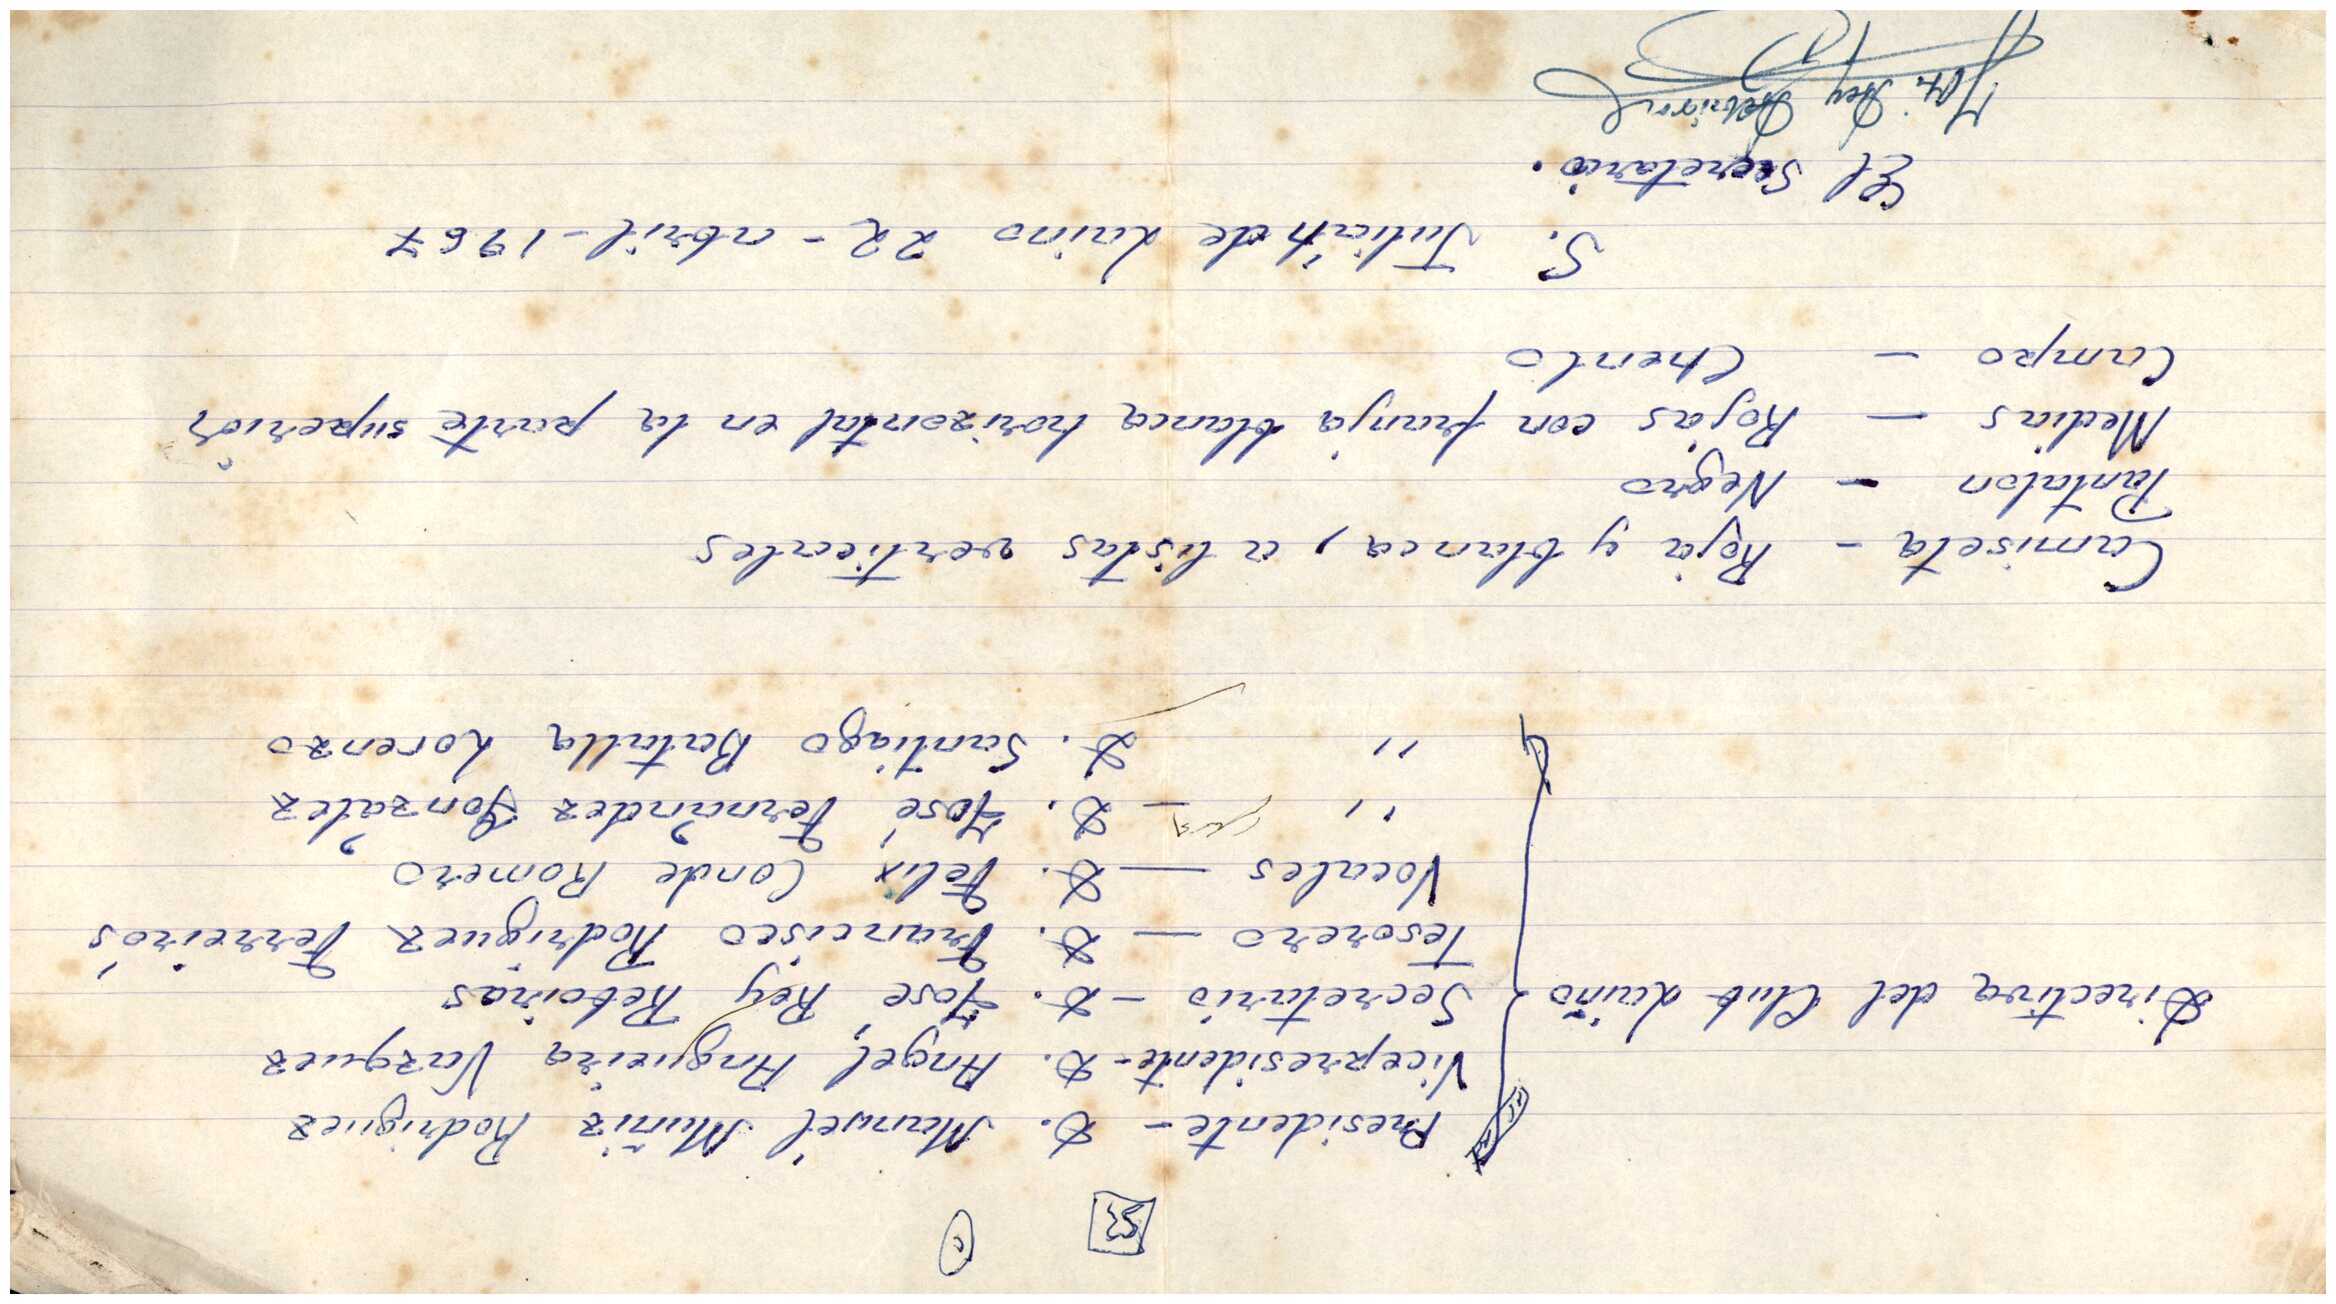 53
Presidente - D. Manuel Muñiz Rodriguez
Vicepresidente - D. Angel Angueira Vazquez
Directiva del Club Laiño Secretario - D. José Rey Reboiras
Tesorero — D. Francisco Rodriguez Ferreirós
Vocales — D. Felix Conde Romero
" — D. José Fernández González
" D. Santiago Batalla Lorenzo
Camiseta - Roja y blanca, a listas verticales
Pantalon - Negro
Medias - Rojas con franja blanca horizontal en la parte superior
Campo - Chenlo
S. Julián de Laiño 22 - abril - 1967
El Secretario.
Rey Reboiras